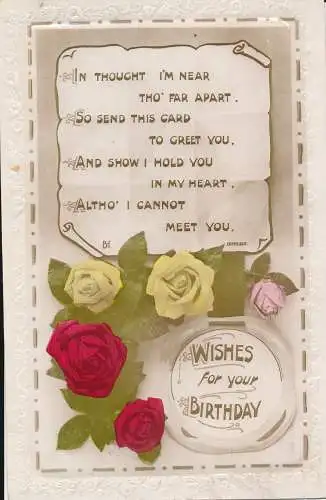 In thought I'm near
tho' far apart.
So send this card
to greet you,
And show I hold you
in my heart,
Altho' I cannot
meet you.
Wishes
for your
Birthday